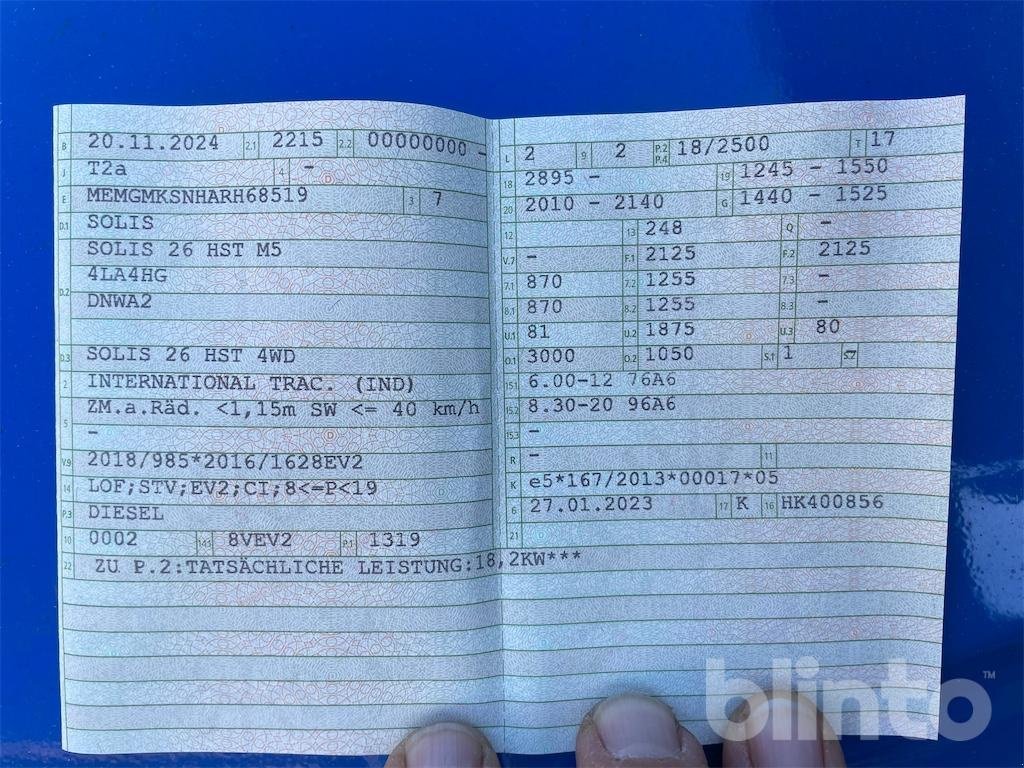 B 20.11.2024 2.1 2215 2.2 00000000 -
J T2a 4 -
E MEMGMKSNHARH68519 3 7
D.1 SOLIS
SOLIS 26 HST M5
4LA4HG
D.2
DNWA2
D.3 SOLIS 26 HST 4WD
2 INTERNATIONAL TRAC. (IND)
ZM.a.Räd. <1,15m SW <= 40 km/h
5
-
V.9 2018/985*2016/1628EV2
14 LOF;STV;EV2;CI;8<=P<19
P.3 DIESEL
10 0002 14.1 8VEV2 P.1 1319
22 ZU P.2:TATSÄCHLICHE LEISTUNG:18,2KW***
L 2 9 2 P.2 P.4 18/2500 T 17
18 2895 - 19 1245 - 1550
20 2010 - 2140 G 1440 - 1525
12 13 248 Q -
V.7 - F.1 2125 F.2 2125
7.1 870 7.2 1255 7.3 -
8.1 870 8.2 1255 8.3 -
U.1 81 U.2 1875 U.3 80
O.1 3000 O.2 1050 S.1 1 S.2
15.1 6.00-12 76A6
15.2 8.30-20 96A6
15.3 -
R - 11
K e5*167/2013*00017*05
6 27.01.2023 17 K 16 HK400856
21
blinto™